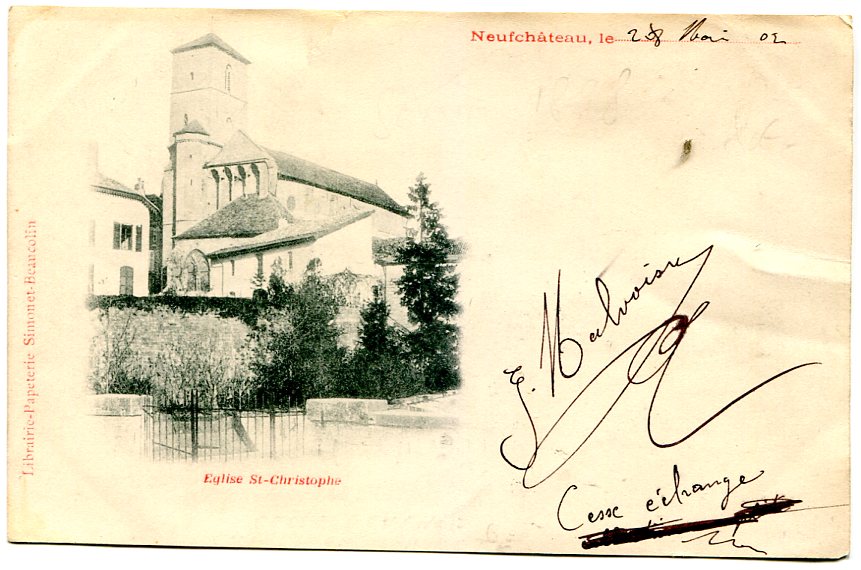 Neufchâteau, le 28 Mai 02
J. Malvoisin
Cesse échange
Eglise St-Christophe
Librairie-Papeterie Simonet-Beaucolin